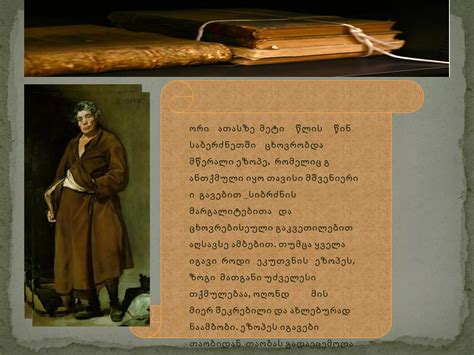 ორი ათასზე მეტი წლის წინ
საბერძნეთში ცხოვრობდა
მწერალი ეზოპე, რომელიც გ
ანთქმული იყო თავისი მშვენიერი
ი გავებით _სიბრძნის
მარგალიტებითა და
ცხოვრებისეული გაკვეთილებით
აღსავსე ამბებით. თუმცა ყველა
იგავი როდი ეკუთვნის ეზოპეს,
ზოგი მათგანი უძველესი
თქმულებაა, ოღონდ მის
მიერ შეკრებილი და ახლებურად
ნაამბობი. ეზოპეს იგავები
თაობიდან თაობას გადაეცემოდა